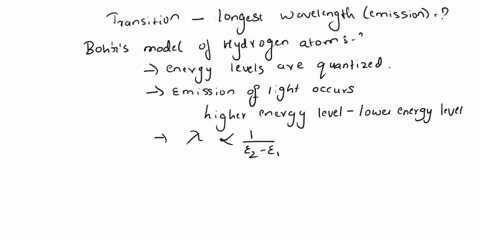 Transition - longest wavelength (emission).?
Bohr's model of Hydrogen atom:-
→ energy levels are quantized.
→ Emission of light occurs
higher energy level - lower energy level
→ λ ∝ 1/(ε₂-ε₁